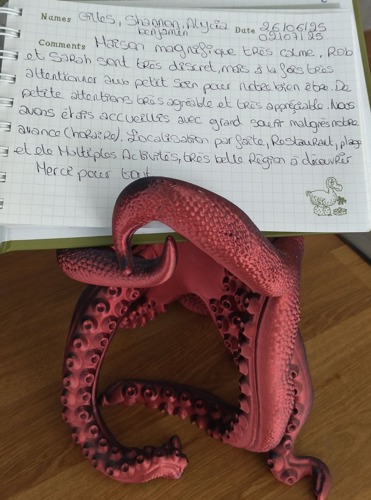 Names Gilles, Shannon, Alycia Date 26/06/25
benjamin 02/07/25
Comments Maison magnifique très calme, Rob
et Sarah sont très discret, mais à la fois très
attentionner aux petit soin pour notre bien être. De
petite attentions très agréable et très appréciable. Nous
avons étais accueillies avec grand sourir malgrés notre
avance (horaire). Localisation parfaite, Restaurant, plage
et de Multiples Activités, très belle Région à découvrir
Merci pour tout